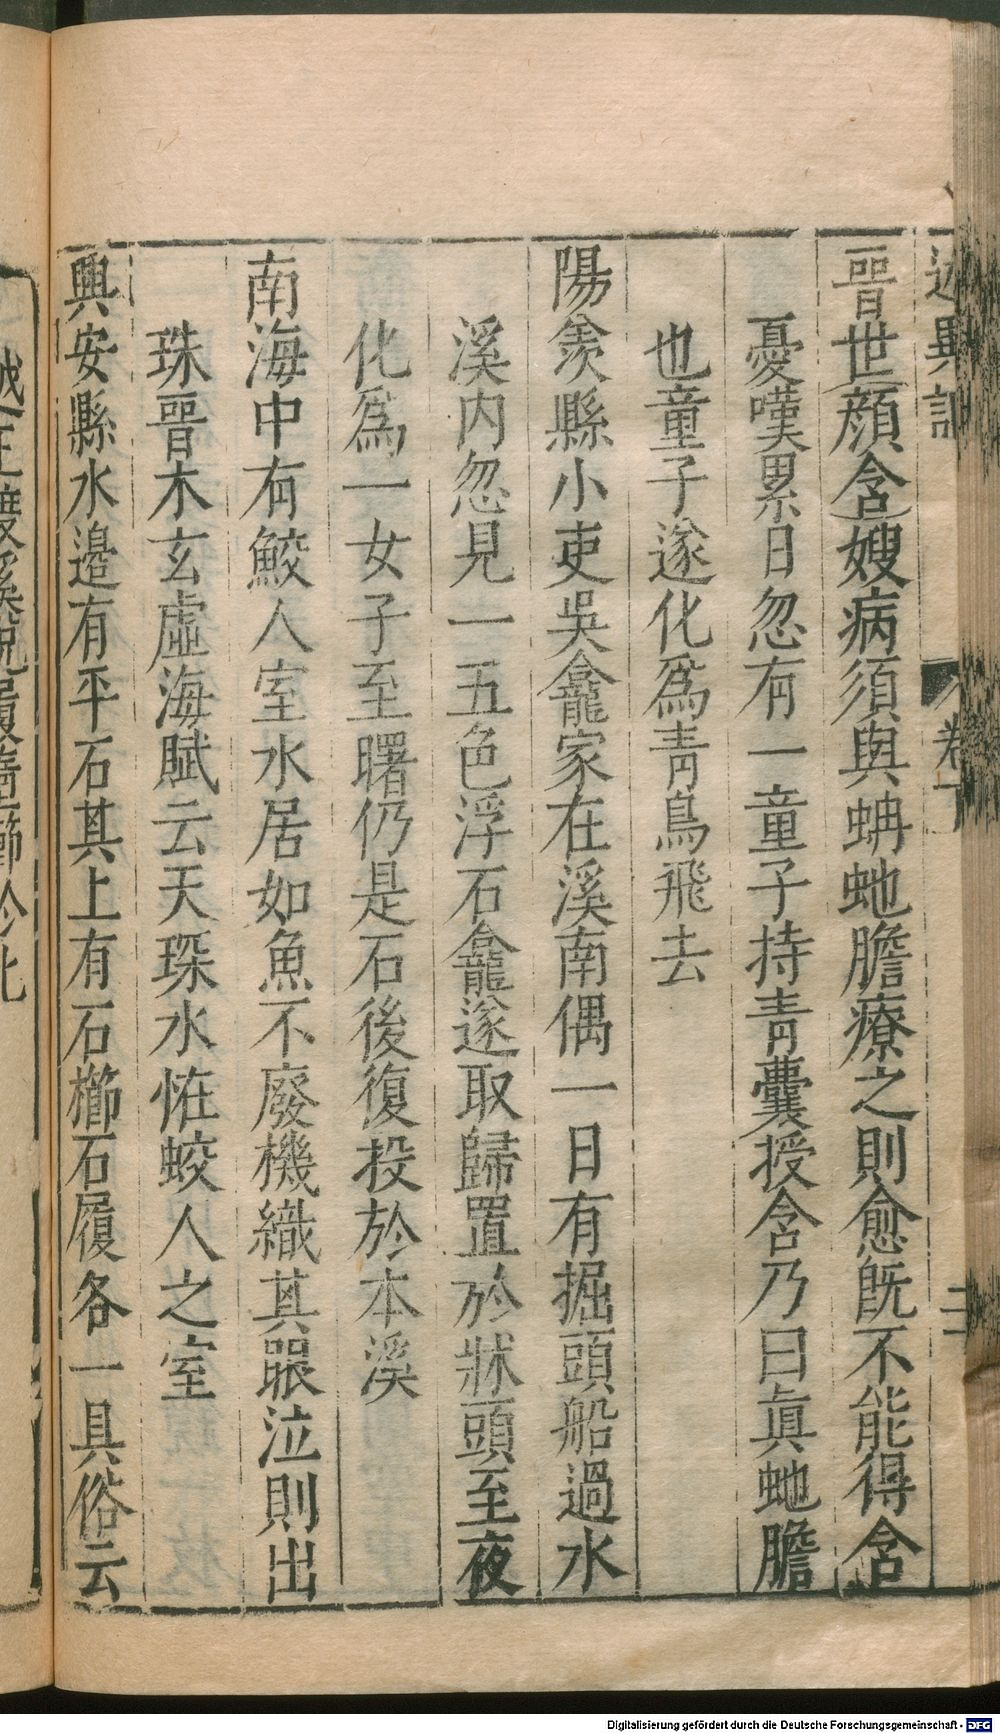 述異記 卷下 二
晉世顔含嫂病須與蚺虵膽療之則愈旣不能得含
憂嘆累日忽有一童子持青囊授含乃曰眞虵膽
也童子遂化爲青鳥飛去
陽羨縣小吏吳龕家在溪南偶一日有掘頭船過水
溪内忽見一五色浮石龕遂取歸置於牀頭至夜
化爲一女子至曙仍是石後復投於本溪
南海中有鮫人室水居如魚不廢機織其眼泣則出
珠晉木玄虛海賦云天琛水恠蛟人之室
興安縣水邉有平石其上有石櫛石履各一具俗云
越王渡溪脫履墮櫛於此
Digitalisierung gefördert durch die Deutsche Forschungsgemeinschaft - DFG